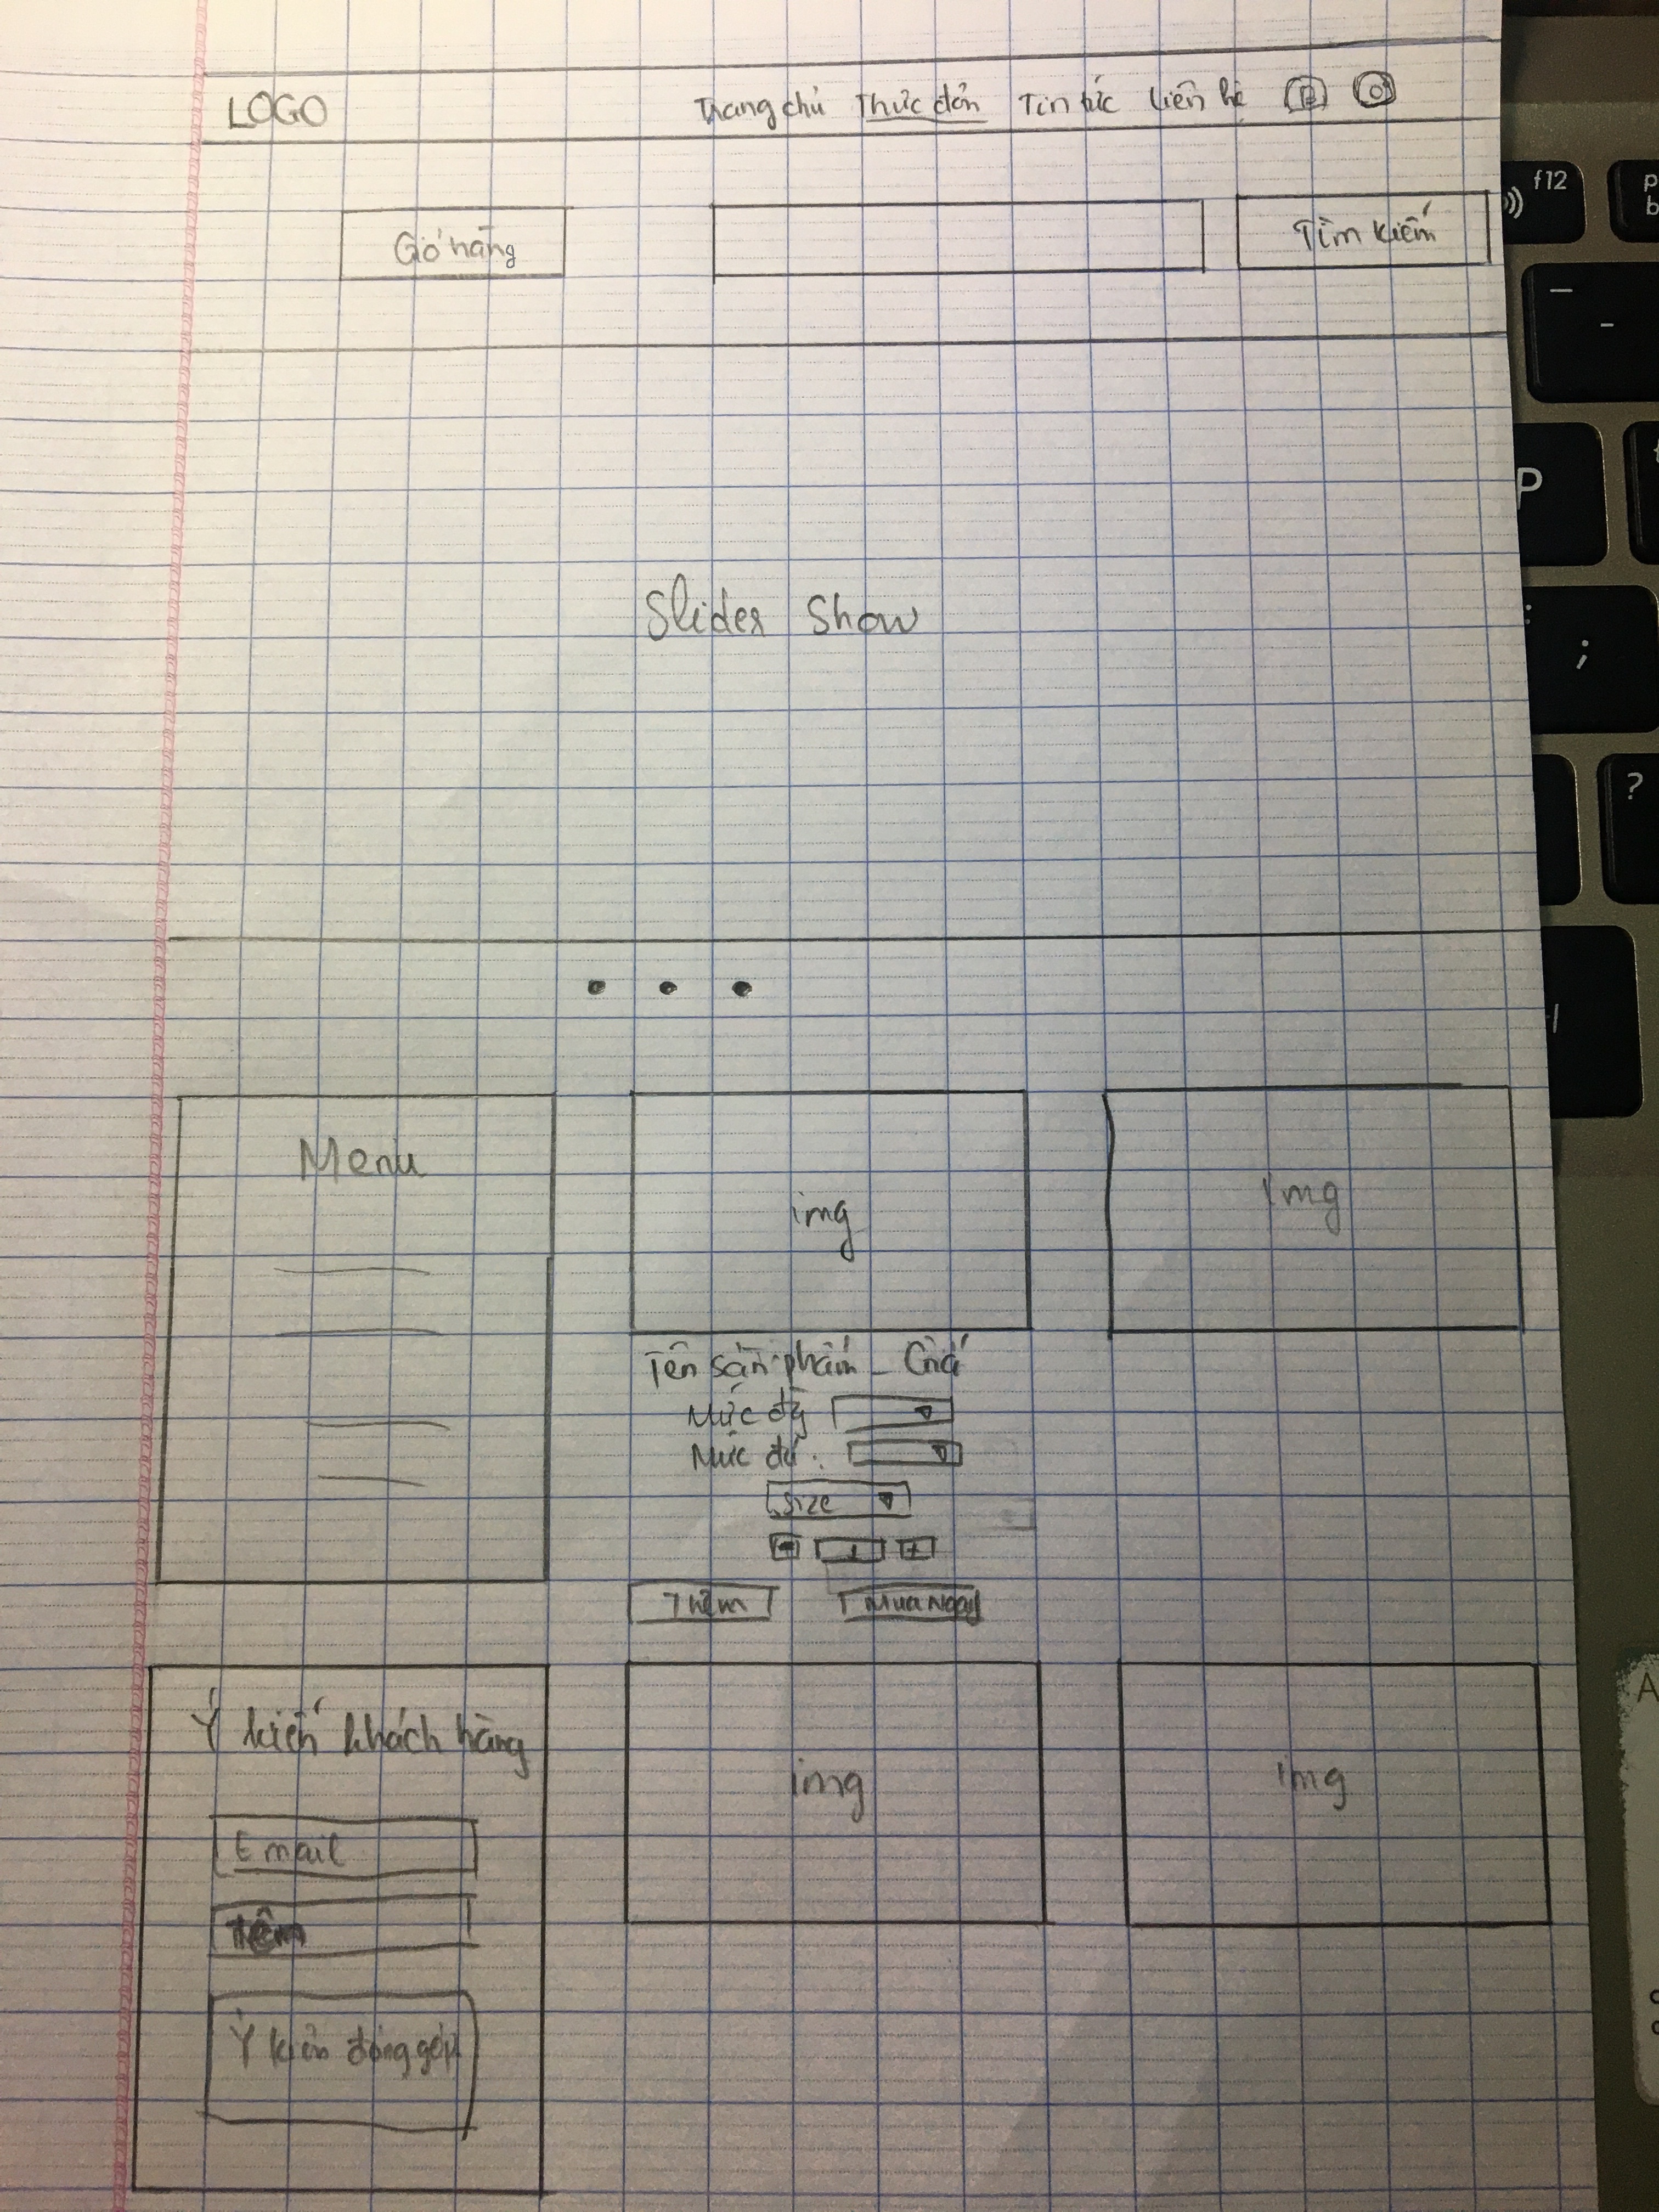 LOGO Trang chủ Thực đơn Tin tức Liên hệ
Giỏ hàng Tìm kiếm
Slider Show
Menu
img
img
Tên sản phẩm - Giá
Mức đg
Mức đá:
size
- 1 +
Thêm Mua Ngay
Ý kiến khách hàng
img
img
Email
Ý kiến đóng góp
f12
P
;
?